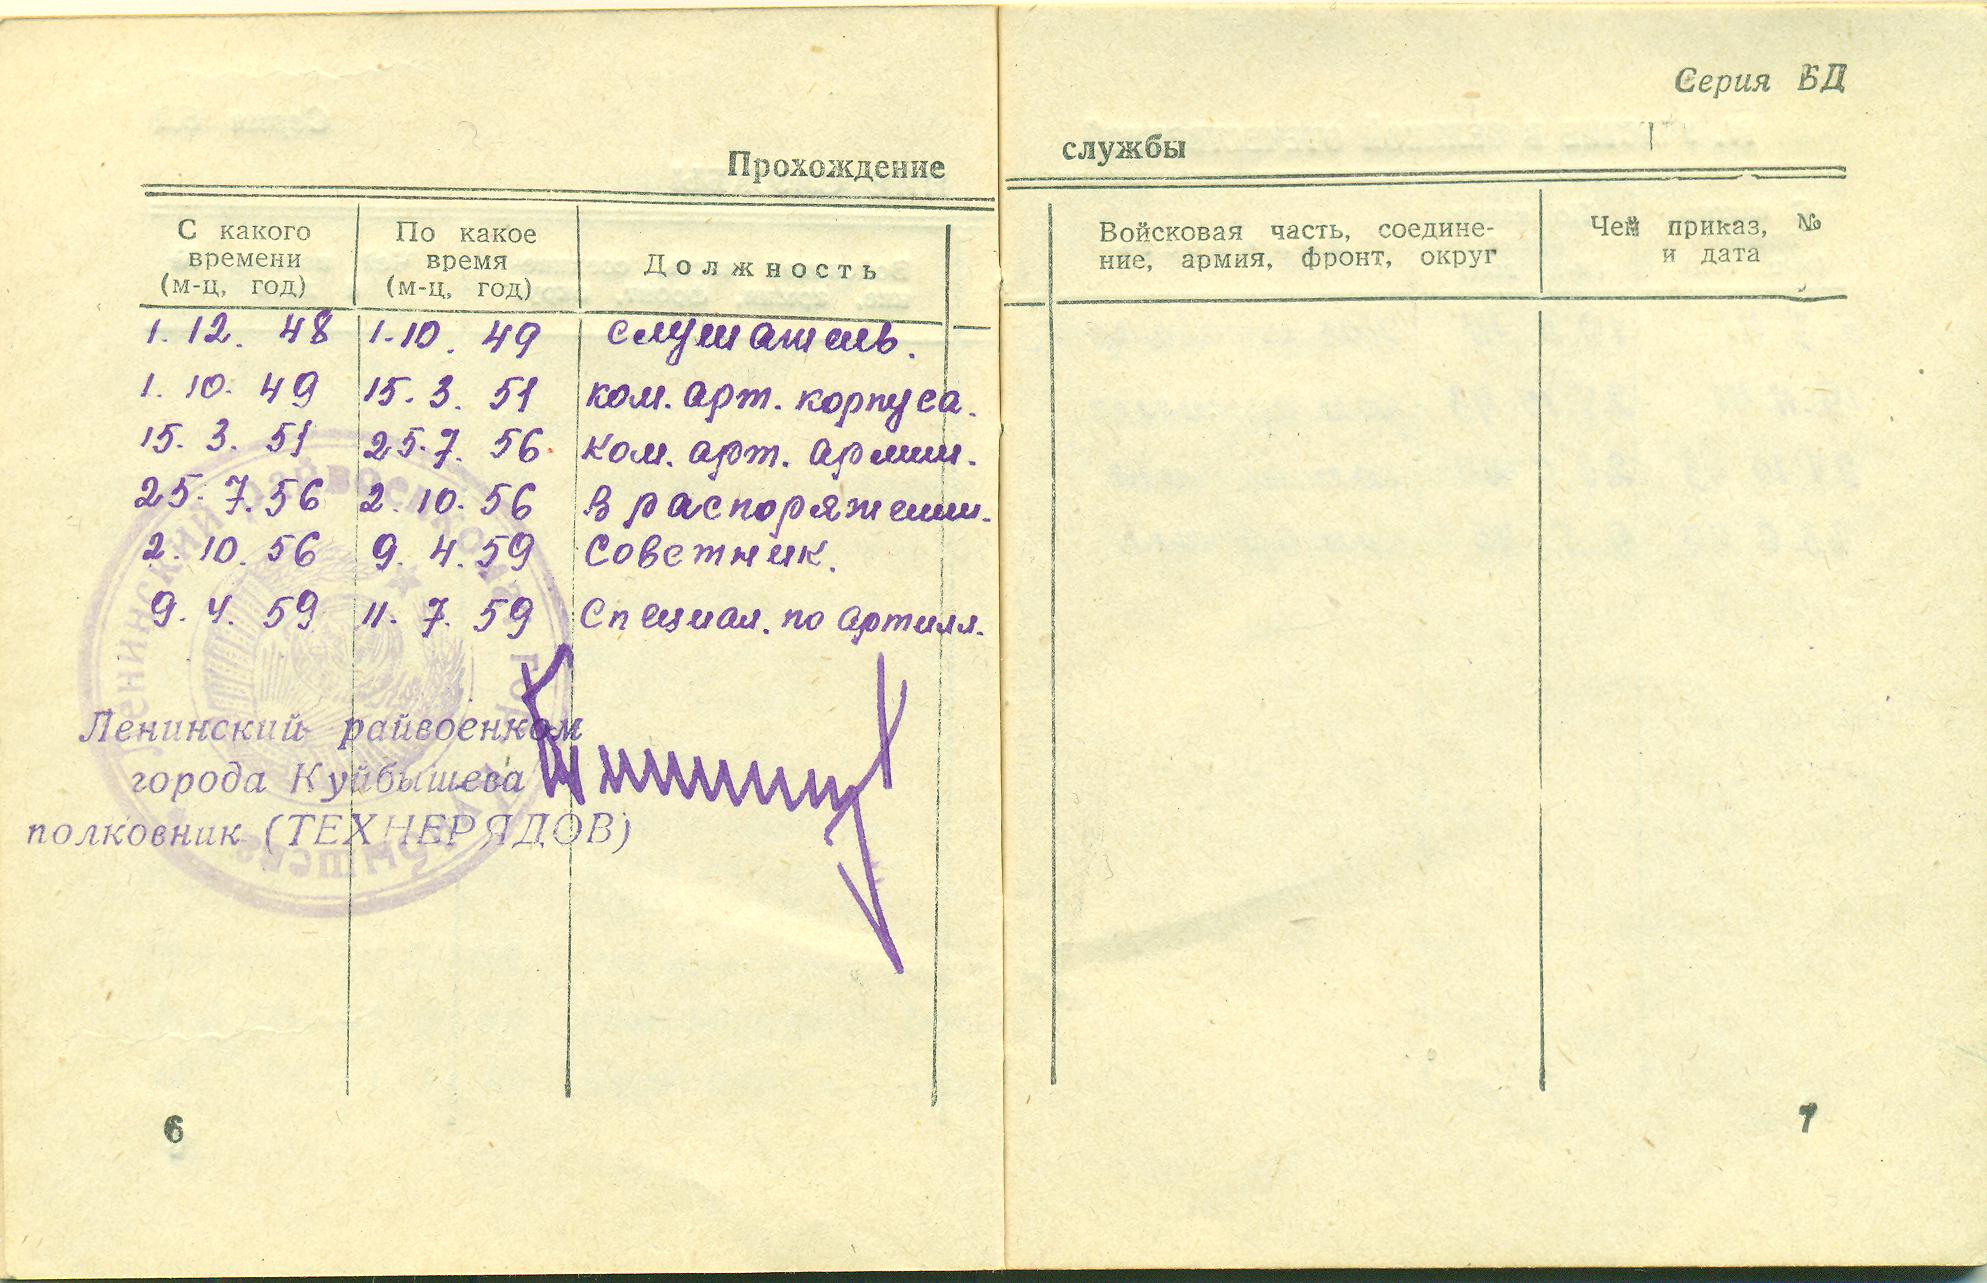 Серия БД
Прохождение службы
С какого времени (м-ц, год)
По какое время (м-ц, год)
Должность
Войсковая часть, соедине-
ние, армия, фронт, округ
Чей приказ, №
и дата
1. 12. 48 1.10. 49 слушатель.
1. 10. 49 15. 3. 51 ком. арт. корпуса.
15. 3. 51 25.7. 56 ком. арт. армии.
25. 7. 56 2. 10. 56 в распоряжении.
2. 10. 56 9. 4. 59 советник.
9. 4. 59 11. 7. 59 Специал. по артилл.
Ленинский райвоенком
города Куйбышева
полковник (ТЕХНЕРЯДОВ)
6
7